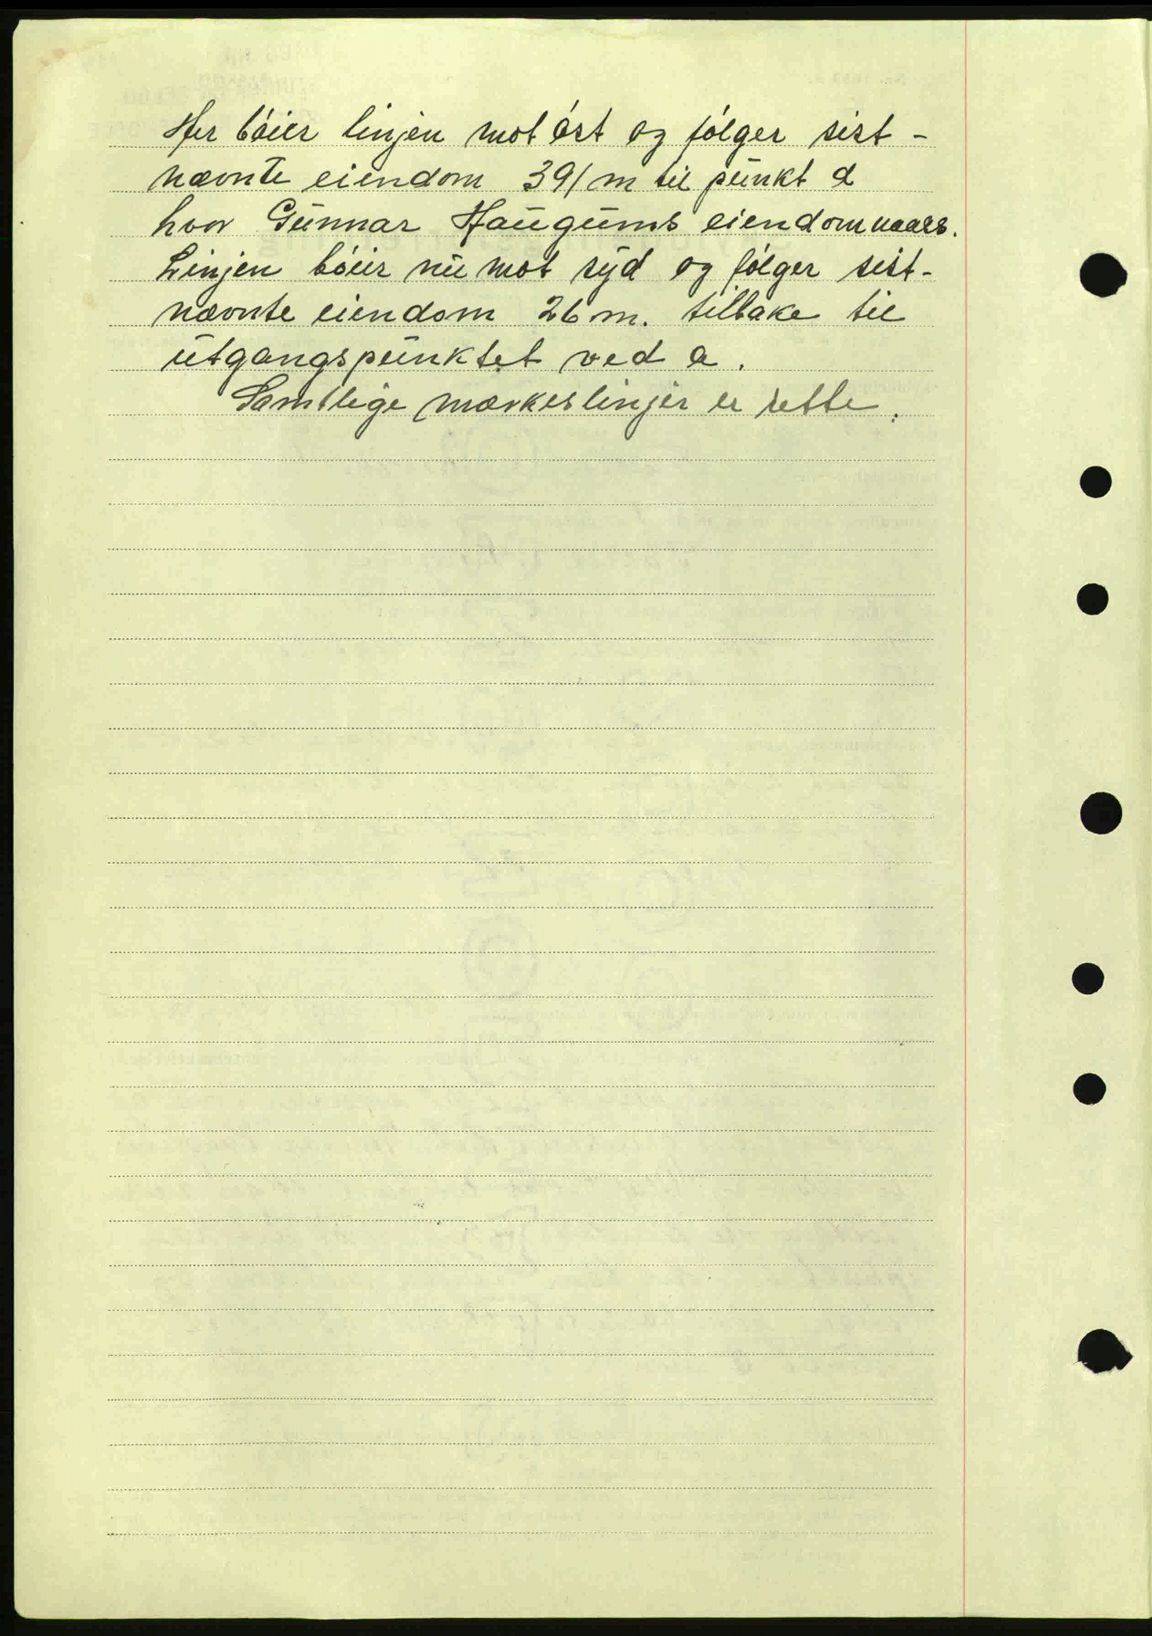 Her bøier linjen mot øst og følger sist-
nævnte eiendom 39 m til punkt d
hvor Gunnar Haugums eiendom naaes.
Linjen bøier nu mot syd og følger sist-
nævnte eiendom 26 m. tilbake til
utgangspunktet ved a.
Samtlige merkeslinjer er rette.